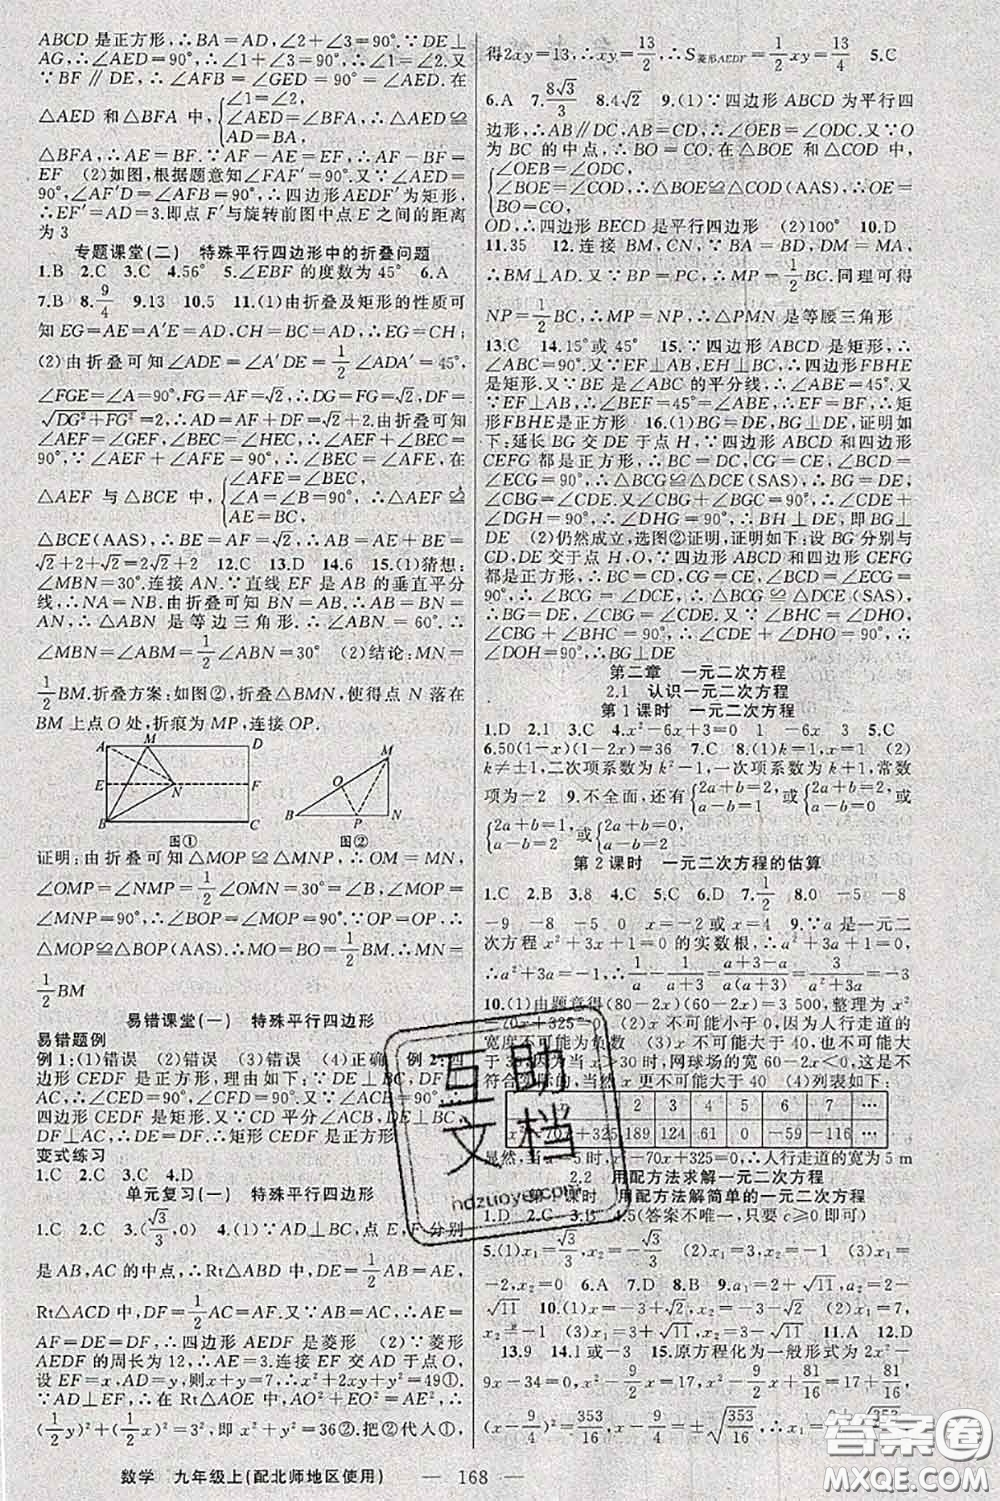 ABCD是正方形,∴BA=AD,∠2+∠3=90°.∵DE⊥
AG,∴∠AED=90°,∴∠1+∠3=90°,∴∠1=∠2.又
∵BF∥DE,∴∠AFB=∠GED=90°,∴∠AED=∠BFA.在
△AED和△BFA中,{∠1=∠2,∠AED=∠BFA,DA=AB,∴△AED≌
△BFA,∴BF=AE.∵AF-AE=EF,∴AF-BF=
EF (2)如图,根据题意知∠FAF′=90°,∵∠AED=
90°,∠AF′D=∠AFB=90°,∴四边形AEDF′为矩形,
∴EF′=AD=3.即点F′与旋转前图中点E之间的距离
为3
专题课堂(二) 特殊平行四边形中的折叠问题
1.B 2.C 3.C 4.56° 5.∠EBF的度数为45° 6.A
7.B 8.9/4 9.13 10.5 11.(1)由折叠及矩形的性质可
知EG=AE=A′E=AD,CH=BC=AD,∴EG=CH
(2)由折叠可知∠ADE=∠A′DE=1/2∠ADA′=45°,
∠FGE=∠A=90°,∵AF=√2,∴DG=FG=√2,DF=
√(DG²+FG²)=2,∴AD=AF+DF=√2+2.由折叠可知
∠AEF=∠GEF,∠BEC=∠HEC,∴∠AEF+∠BEC=
90°,∵∠AEF+∠AFE=90°,∴∠BEC=∠AFE,在
△AEF与△BCE中,{∠AFE=∠BEC,∠A=∠B=90°,AE=BC,∴△AEF≌
△BCE(AAS),∴BE=AF=√2,∴AB=AE+BE=
√2+2+√2=2√2+2 12.C 13.D 14.6 15.(1)猜想:
∠MBN=30°.连接AN.∵直线EF是AB的垂直平分
线,∴NA=NB.由折叠可知BN=AB,∴AB=BN=
AN,∴△ABN是等边三角形.∴∠ABN=60°.∴
∠MBN=∠ABM=1/2∠ABN=30° (2)结论:MN=
1/2BM.折叠方案:如图②,折叠△BMN,使得点N落在
BM上点O处,折痕为MP,连接OP.
A M D
E N F
B C
图①
M O B P N
图②
证明:由折叠可知△MOP≌△MNP,∴OM=MN,
∠OMP=∠NMP=1/2∠OMN=30°=∠B,∠MOP=
∠MNP=90°,∴∠BOP=∠MOP=90°.∵OP=OP,∴
△MOP≌△BOP(AAS),∴MO=BO=1/2BM,∴MN=
1/2BM
易错课堂(一) 特殊平行四边形
易错题例
例1:(1)错误 (2)错误 (3)错误 (4)正确 例2:四
边形CEDF是正方形,理由如下:∵DE⊥BC,DF⊥
AC,∴∠CED=90°,∠CFD=90°.又∵∠ACB=90°,∴
四边形CEDF是矩形.又∵CD平分∠ACB,DE⊥BC,
DF⊥AC,∴DE=DF,∴矩形CEDF是正方形
变式练习
1.C 2.C 3.C 4.D
单元复习(一) 特殊平行四边形
1.C 2.C 3.(√3/3,0) 4.(1)∵AD⊥BC,点E,F分别
是AB,AC的中点,∴Rt△ABD中,DE=1/2AB=AE,
Rt△ACD中,DF=1/2AC=AF.又∵AB=AC,∴AE=
AF=DE=DF,∴四边形AEDF是菱形 (2)∵菱形
AEDF的周长为12,∴AE=3.连接EF交AD于点O,
设EF=x,AD=y,则x+y=7,∴x²+2xy+y²=49①.
∵AD⊥EF,∴在Rt△AOE中,AO²+EO²=AE²,∴
(1/2y)²+(1/2x)²=3²,即x²+y²=36②,把②代入①,
得2xy=13,∴xy=13/2,∴S菱形AEDF=1/2xy=13/4 5.C
6.A 7.8√3/3 8.4√2 9.(1)∵四边形ABCD为平行四
边形,∴AB∥DC,AB=CD,∴∠OEB=∠ODC.又∵O
为BC的中点,∴BO=CO.在△BOE和△COD中,
{∠OEB=∠ODC,∠BOE=∠COD,BO=CO,∴△BOE≌△COD(AAS),∴OE=
OD,∴四边形BECD是平行四边形 (2)100° 10.D
11.35 12.连接BM,CN,∵BV=DB,DM=MA,
∴BM⊥AD.又∵BP=PC,∴MP=1/2BC.同理可得
NP=1/2BC,∴MP=NP,∴△PMN是等腰三角形
13.C 14.15°或45° 15.∵四边形ABCD是矩形,
∴∠A=∠ABC=90°.又∵EF⊥AD,∴四边形FBHE
是矩形.又∵BE是∠ABC的平分线,∴∠ABE=45°.又
∵EF⊥AB,∴∠BEF=45°=∠ABE,∴BF=EF,∴矩
形FBHE是正方形 16.(1)BG=DE,BG⊥DE,证明如
下:延长BG交DE于点H,∵四边形ABCD和四边形
CEFG都是正方形,∴BC=DC,CG=CE,∠BCD=
∠ECG=90°,∴△BCG≌△DCE(SAS),∴BG=DE,
∠CBG=∠CDE.又∵∠CBG+∠BGC=90°,∴∠CDE+
∠DGH=90°,∴∠DHG=90°,∴BH⊥DE,即BG⊥
DE (2)仍然成立,选图②证明,证明如下:设BG分别与
CD,DE交于点H,O,∵四边形ABCD和四边形CEFG
都是正方形,∴BC=DC,CG=CE,∠BCD=∠ECG=
90°,∴∠BCG=∠DCE,∴△BCG≌△DCE(SAS),
∴BG=DE,∠CBG=∠CDE.又∵∠BHC=∠DHO,
∠CBG+∠BHC=90°,∴∠CDE+∠DHO=90°,∴
∠DOH=90°,∴BG⊥DE
第二章 一元二次方程
2.1 认识一元二次方程
第1课时 一元二次方程
1.D 2.1 3.C 4.x²-6x+3=0 1 -6x 3 5.C
6.50(1-x)(1-2x)=36 7.C 8.(1)k=1 (2)
k≠±1,二次项系数为k²-1,一次项系数为k+1,常数
项为-2 9.不全面,还有{2a+b=2,a-b=1或{2a+b=2,a-b=0或
{2a+b=1,a-b=2或{2a+b=0,a-b=2
第2课时 一元二次方程的估算
1.C 2.B 3.8 4.C 5.C 6.D 7.1/2 8.0 -5 -8
-9 -8 -5 0 x=-2或x=4 9.∵a是一元二
次方程x²+3x+1=0的实数根,∴a²+3a+1=0,
∴a²+3a=-1,∴1/a-1/(a+3)=(a+3-a)/(a(a+3))=3/(a²+3a)=-3
10.(1)由题意得(80-2x)(60-2x)=3 500,整理为x²
-70x+325=0 (2)x不可能小于0,因为人行道的
宽度不可能为负数 (3)x不可能大于40,也不可能大
于30,因为当x>30时,网球场的宽60-2x<0,这是不
符合实际的,当然x更不可能大于40 (4)列表如下:
x 2 3 4 5 6 7 …
x²-70x+325 189 124 61 0 -59 -116 …
显然,当x=5时,x²-70x+325=0,∴人行道的宽为5 m
2.2 用配方法求解一元二次方程
第1课时 用配方法解简单的一元二次方程
1.D 2.C 3.B 4.5(答案不唯一,只要c≥0即可)
5.(1)x₁=√3/3,x₂=-√3/3 (2)x₁=4,x₂=
-2,x₂=0 6.A 7.D 8.B 9.a₁=2+√11,a₂=2-
√11 10.(1)x₁=-3+√2,x₂=-3-√2 (2)x₁=7,
x₂=-1 (3)x₁=3,x₂=-1 11.A 12.D
13.9 14.1或-3 15.原方程化为一般形式为2x²-
9x-34=0,x²-9/2x=17,x²-9/2x+81/16=17+81/16,
(x-9/4)²=353/16,x-9/4=±√353/16,∴x₁=(9+√353)/4,
数学 九年级上(配北师地区使用) — 168 —
互助文档
hdzuoye.com
答案圈
MXQE.COM